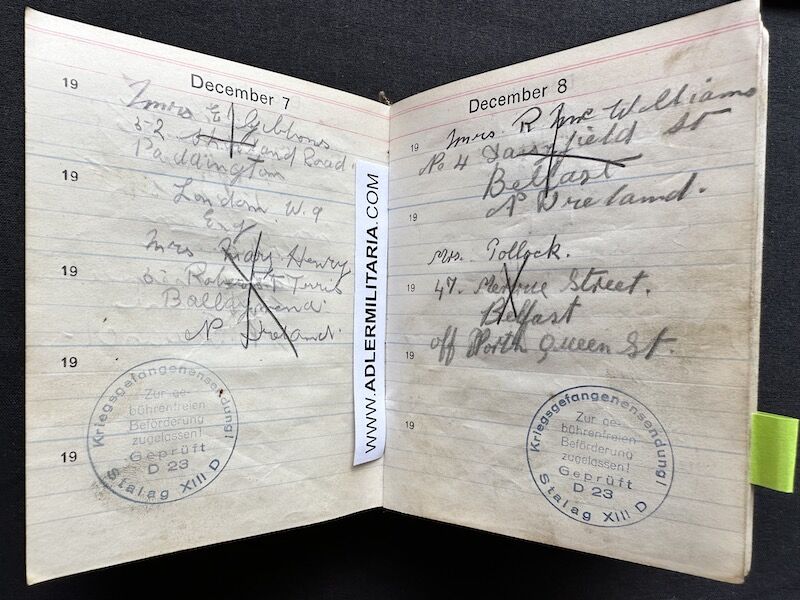 December 7
19
Mrs E Gibbons
52 Road.
Paddington
19
London. W. 9
Eng
Mrs Mary Henry
19
Robert
Ballymena
N Ireland.
19
19
Kriegsgefangenensendung!
Zur ge-
bührenfreien
Beförderung
zugelassen!
Geprüft
D 23
Stalag XIII D
WWW.ADLERMILITARIA.COM
December 8
19
Mrs R Mc Williams
No 4 St
Belfast
N Ireland.
19
Mrs. Pollock.
19
47. Street.
Belfast
off North Queen St.
19
19
Kriegsgefangenensendung!
Zur ge-
bührenfreien
Beförderung
zugelassen!
Geprüft
D 23
Stalag XIII D